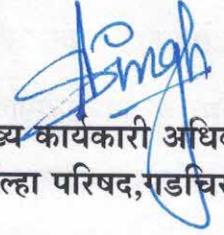 Singh
ख्य कार्यकारी अधि
ल्हा परिषद,गडचि